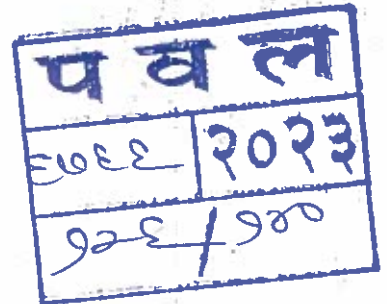 प व ल
६७६६ २०२३
१२६/१४०